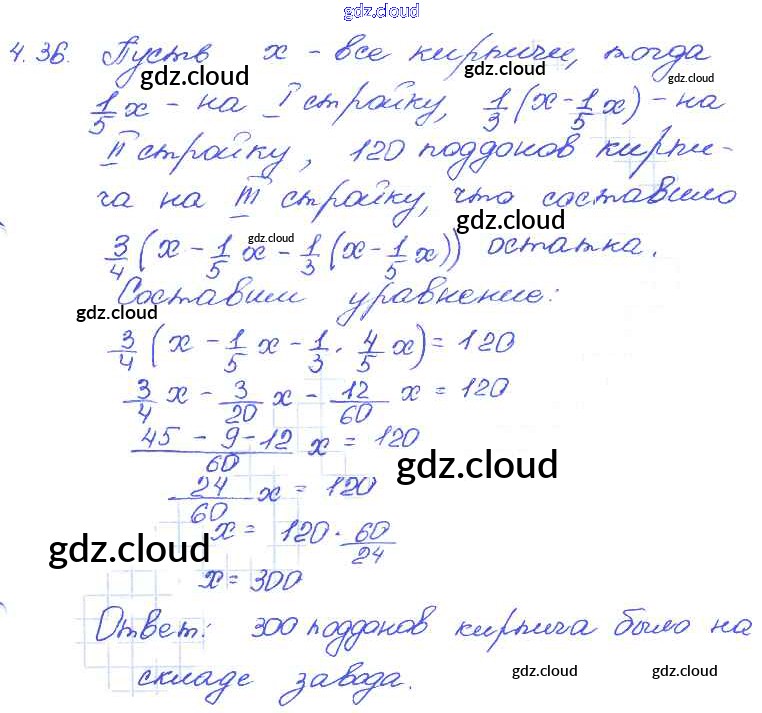 gdz.cloud
4.36. Пусть x - все кирпичи, тогда
gdz.cloud gdz.cloud
1/5 x - на I стройку, 1/3 (x - 1/5 x) - на
II стройку, 120 поддонов кирпи-
ча на III стройку, что составило
gdz.cloud
3/4 (x - 1/5 x - 1/3 (x - 1/5 x)) остатка.
gdz.cloud
Составим уравнение:
gdz.cloud
3/4 (x - 1/5 x - 1/3 · 4/5 x) = 120
3/4 x - 3/20 x - 12/60 x = 120
(45 - 9 - 12)/60 x = 120
gdz.cloud
24/60 x = 120
x = 120 · 60/24
gdz.cloud
x = 300
Ответ: 300 поддонов кирпича было на
складе завода.
gdz.cloud gdz.cloud